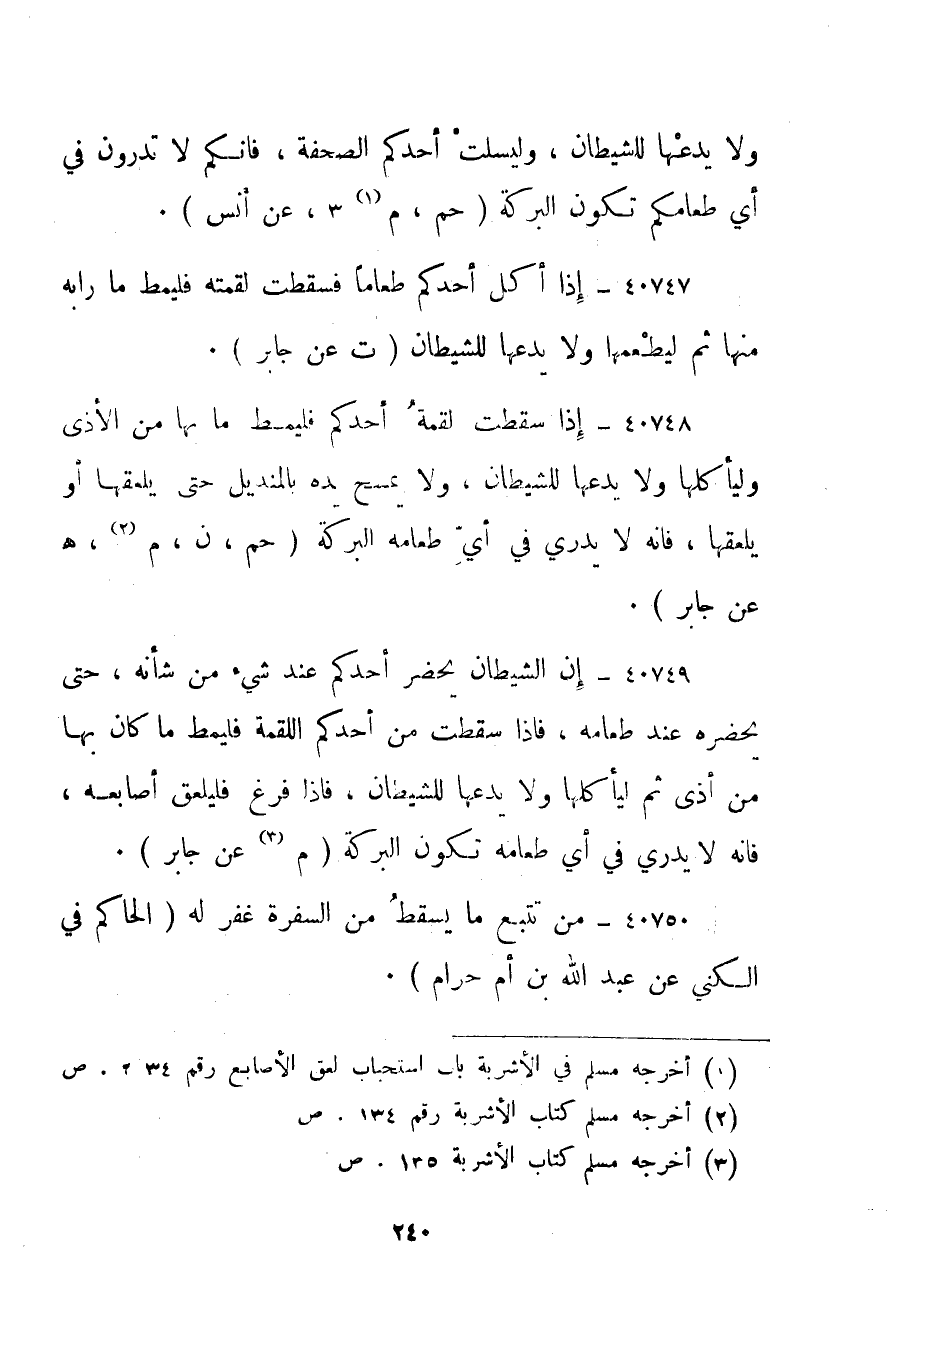 ولا يدعْها للشيطان ، وليسلتْ أحدكم الصحفة ، فانكم لا تدرون في
أي طعامكم تكون البركة ( حم ، م (١) ٣ ، عن أنس ) .
٤٠٧٤٧ – إِذا أكل أحدكم طعاماً فسقطت لقمته فليمط ما رابه
منها ثم ليطْعمها ولا يدعها للشيطان ( ت عن جابر ) .
٤٠٧٤٨ – إِذا سقطت لقمةُ أحدكم فليمط ما بها من الأذى
وليأكلها ولا يدعها للشيطان ، ولا يمسح يده بالمنديل حتى يلعقها أو
يلعقها ، فانه لا يدري في أيِّ طعامه البركة ( حم ، ن ، م (٢) ، ه
عن جابر ) .
٤٠٧٤٩ – إِن الشيطان يحضر أحدكم عند شيء من شأنه ، حتى
يحضره عند طعامه ، فاذا سقطت من أحدكم اللقمة فليمط ما كان بها
من أذى ثم ليأكلها ولا يدعها للشيطان ، فاذا فرغ فليلعق أصابعه ،
فانه لا يدري في أي طعامه تكون البركة ( م (٣) عن جابر ) .
٤٠٧٥٠ – من تتبع ما يسقطُ من السفرة غفر له ( الحاكم في
الكنى عن عبد الله بن أم حرام ) .
(١) أخرجه مسلم في الأشربة باب استحباب لعق الأصابع رقم ٢٠٣٤ . ص
(٢) أخرجه مسلم كتاب الأشربة رقم ١٣٤ . ص
(٣) أخرجه مسلم كتاب الأشربة ١٣٥ . ص
٢٤٠